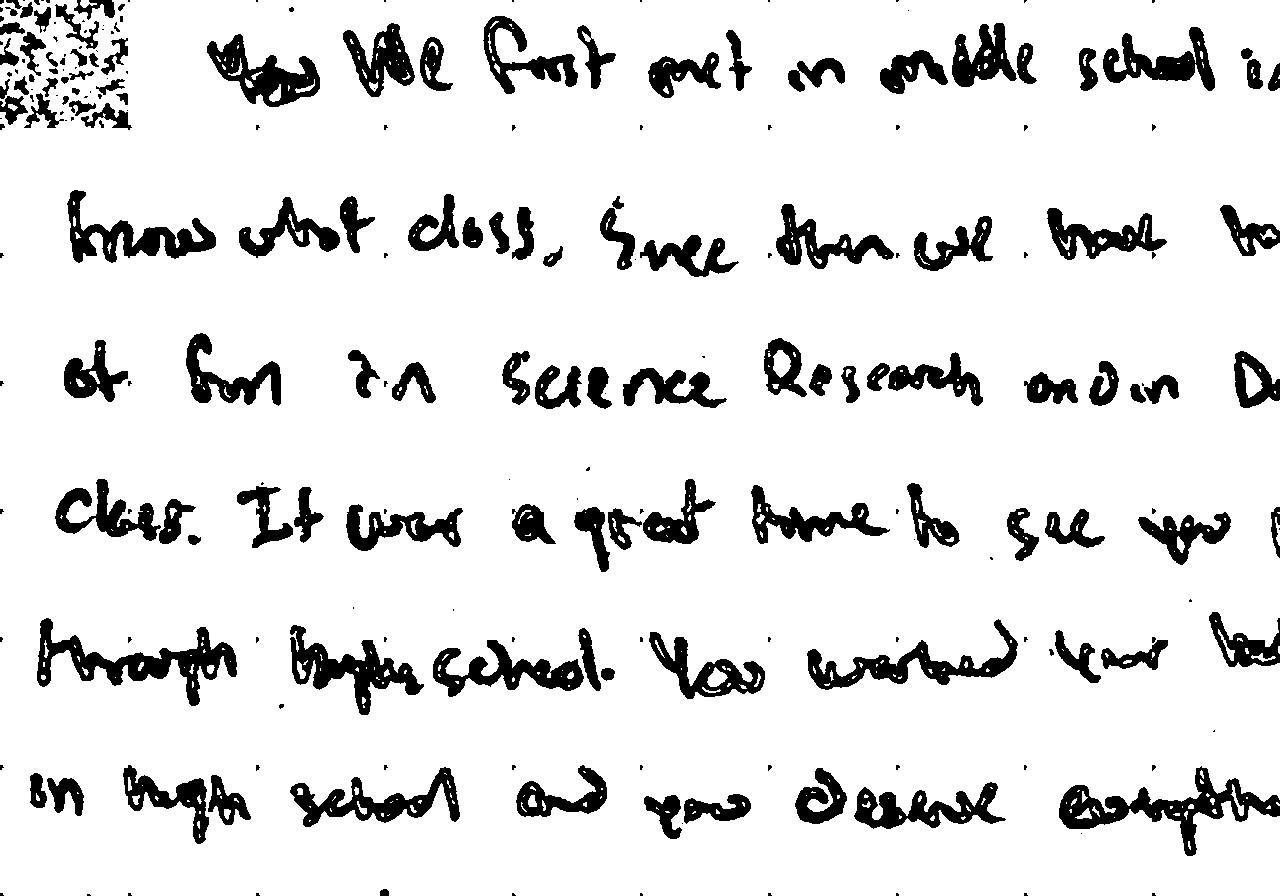 You We first met in middle school
know what class, Since then we had
of fun in Science Research and in
class. It was a great time to see you
through high school. You worked your
in high school and you deserve